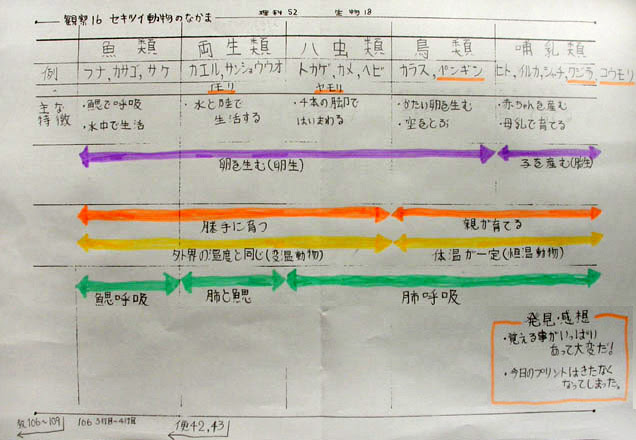 理科 52　生物 18
観察16 セキツイ動物のなかま
魚類　両生類　ハ虫類　鳥類　哺乳類
例　フナ,カサゴ,サケ　カエル,サンショウウオ　トカゲ,カメ,ヘビ　カラス,ペンギン　ヒト,イルカ,シャチ,クジラ,コウモリ
イモリ　ヤモリ
主な特徴
・鰓で呼吸　・水と陸で生活する　・4本の脚ではいまわる　・かたい卵を産む　・赤ちゃんを産む
・水中で生活　・空をとぶ　・母乳で育てる
卵を産む(卵生)　子を産む(胎生)
勝手に育つ　親が育てる
外界の温度と同じ(変温動物)　体温が一定(恒温動物)
鰓呼吸　肺と鰓　肺呼吸
発見・感想
・覚える事がいっぱい
あって大変だ!
・今日のプリントはきたなく
なってしまった。
教106〜109　106 3行目〜4行目　便42,43